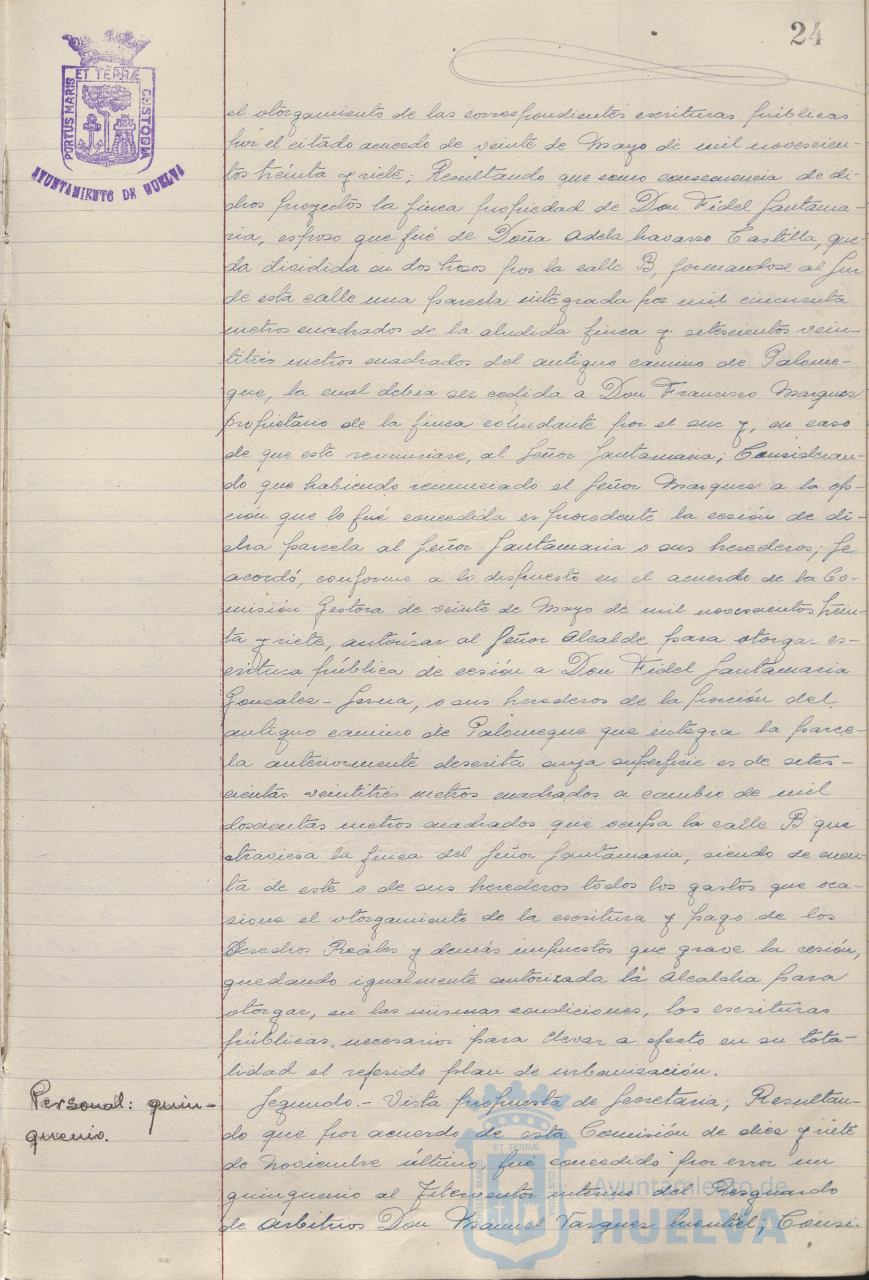 24
PORTUS MARIS ET TERRÆ CUSTODIA
AYUNTAMIENTO DE HUELVA
el otorgamiento de las correspondientes escrituras públicas
por el citado acuerdo de veinte de Mayo de mil novescien-
tos treinta y siete; Resultando que como consecuencia de di-
chos proyectos la finca propiedad de Don Fidel Santama-
ria, esposo que fué de Doña Adela Navarro Castilla, que-
da dividida en dos trozos por la calle B, formandose al Sur
de esta calle una parcela integrada por mil cincuenta
metros cuadrados de la aludida finca y setescientos vein-
titrés metros cuadrados del antiguo camino de Palome-
que, la cual debia ser cedida a Don Francisco Marquez
propietario de la finca colindante por el sur y, en caso
de que este renunciare, al Señor Santamaria; Consideran-
do que habiendo renunciado el Señor Marquez a la op-
ción que lo fué concedida es procedente la cesión de di-
cha parcela al Señor Santamaria o sus herederos; Se
acordó, conforme a lo dispuesto en el acuerdo de la Co-
misión Gestora de veinte de Mayo de mil novescientos trein-
ta y siete, autorizar al Señor Alcalde para otorgar es-
critura pública de cesión a Don Fidel Santamaria
Gonzalez-Serna, o sus herederos de la porción del
antiguo camino de Palomeque que integra la parce-
la anteriormente descrita cuya superficie es de setes-
cientos veintitrés metros cuadrados a cambio de mil
doscientos metros cuadrados que ocupa la calle B que
atraviesa la finca del Señor Santamaria, siendo de cuen-
ta de este o de sus herederos todos los gastos que oca-
sione el otorgamiento de la escritura y pago de los
Derechos Reales y demás impuestos que grave la cesión,
quedando igualmente autorizada la Alcaldia para
otorgar, en las mismas condiciones, las escrituras
públicas, necesarias para llevar a efecto en su tota-
lidad el referido plan de urbanización.
Personal: quin-
quenio.
Segundo.- Vista propuesta de Secretaria; Resultan-
do que por acuerdo de esta Comisión de diez y siete
de Noviembre último, fué concedido por error un
quinquenio al Interventor interino del Resguardo
de Arbitrios Don Manuel Vazquez Montiel; Consi-
Ayuntamiento de
HUELVA